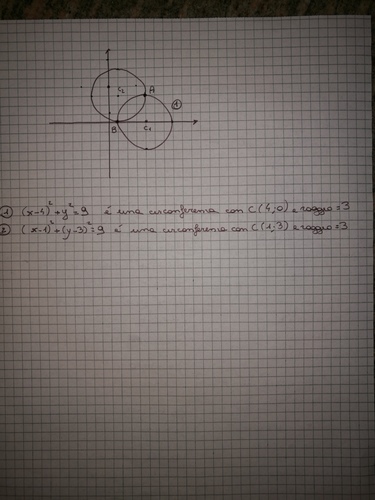 C₂
A
①
B
C₁
① (x-4)²+y²=9 è una circonferenza con C(4;0) e raggio=3
② (x-1)²+(y-3)²=9 è una circonferenza con C(1;3) e raggio=3